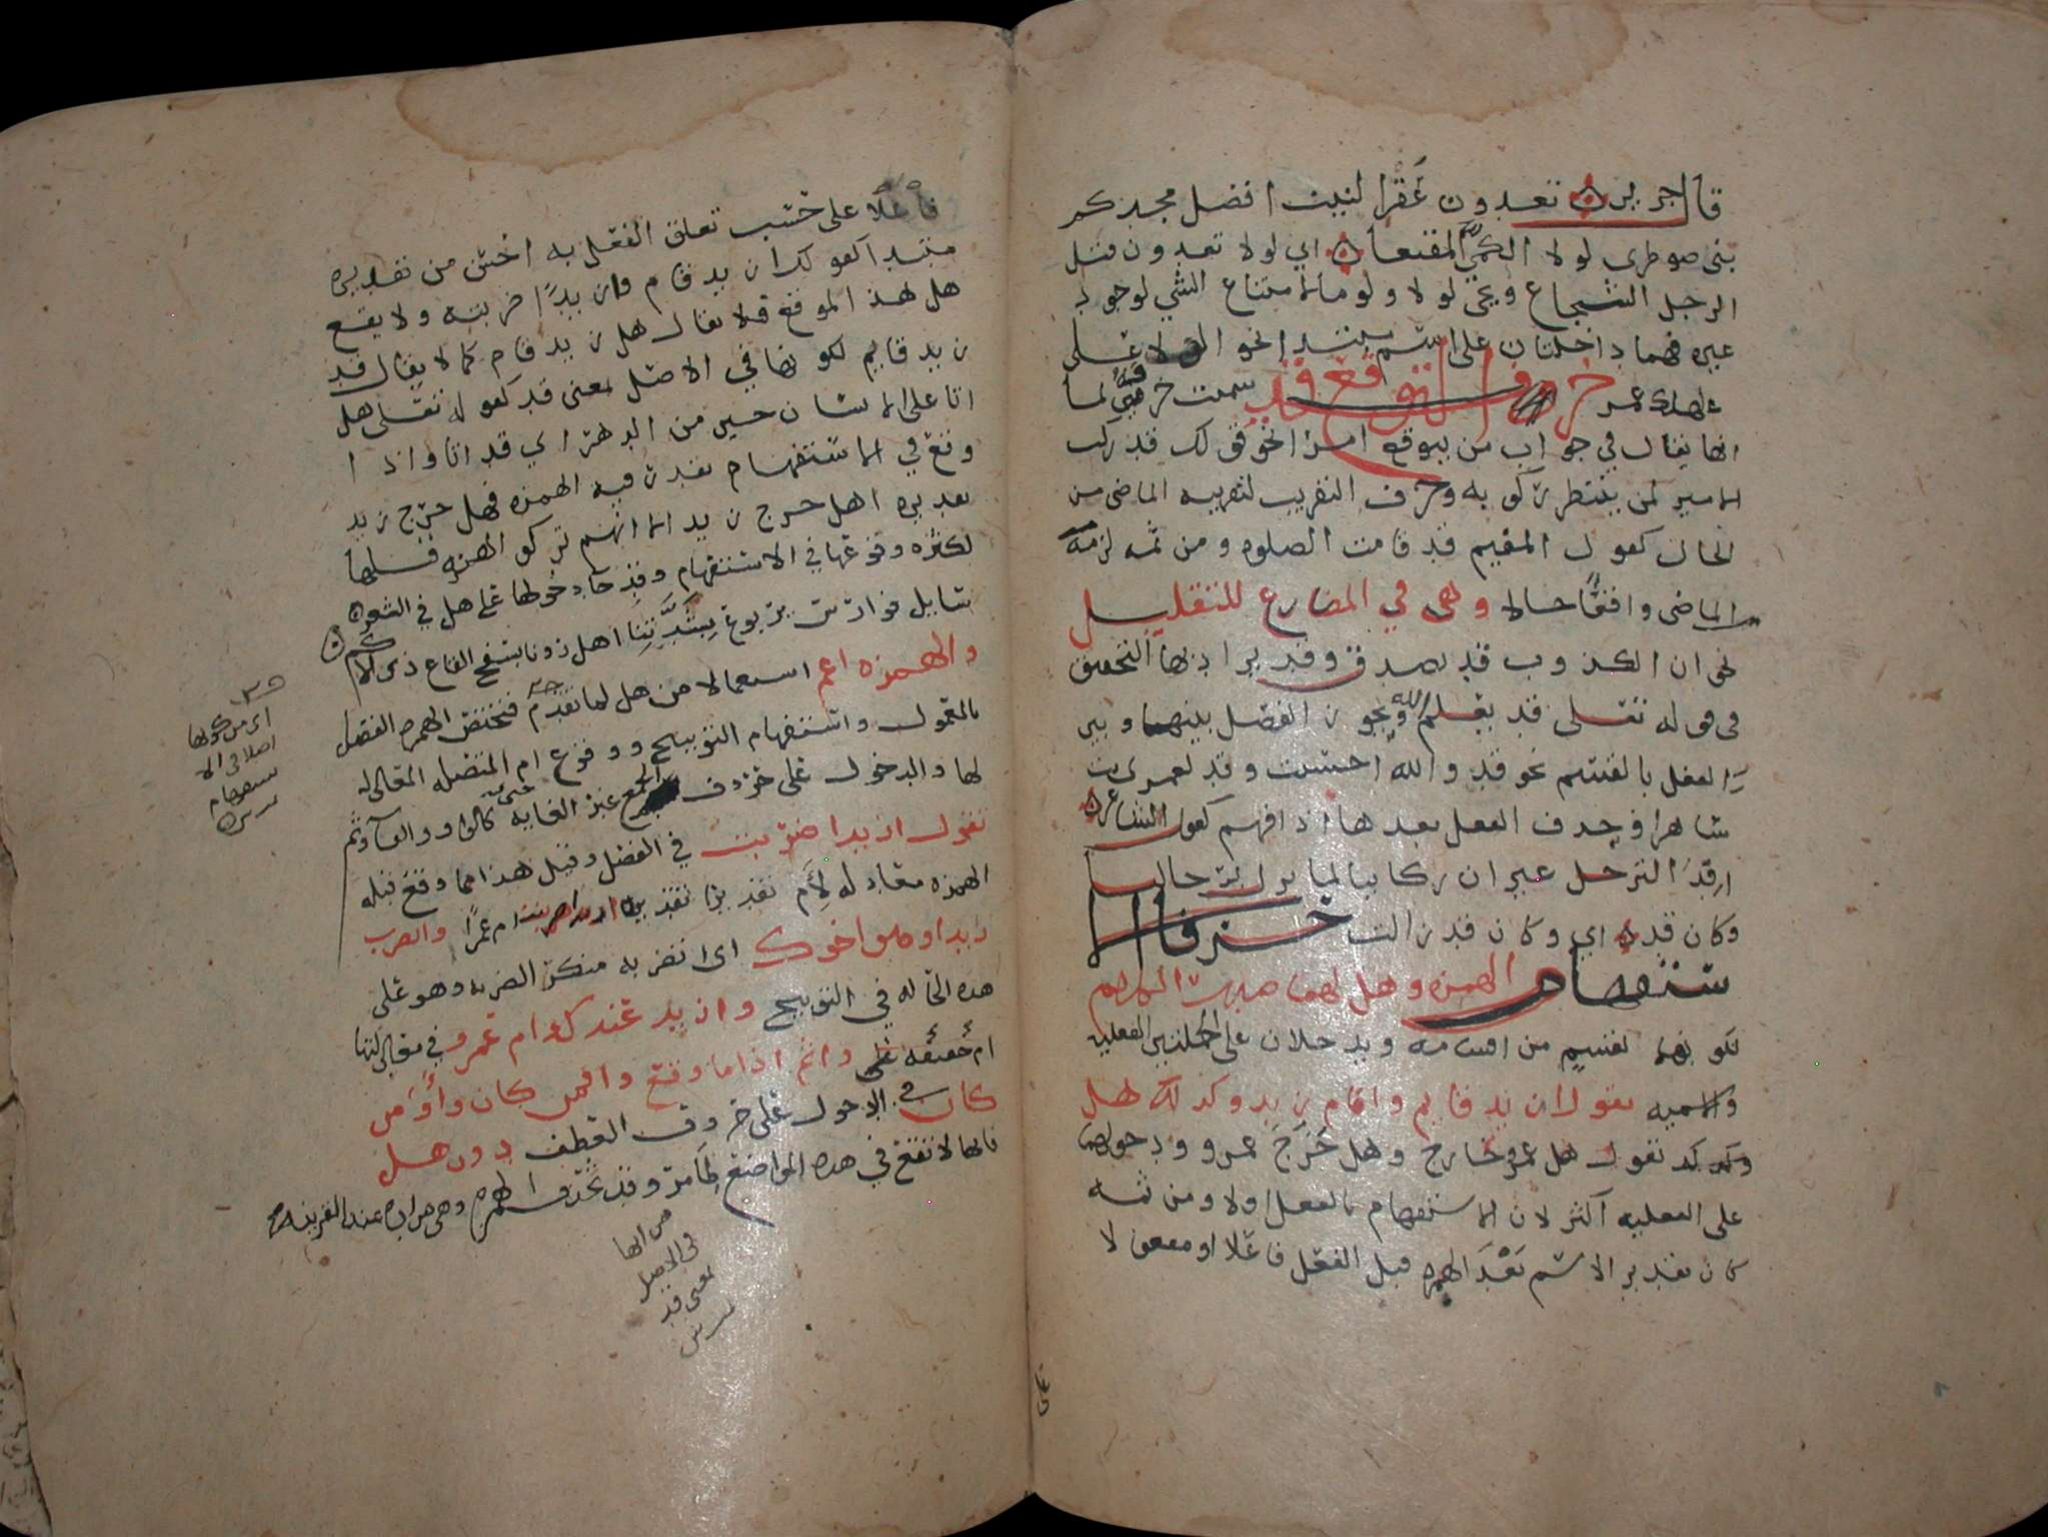 قال جرير ۞ تعدون عقرا لنيب افضل مجدكم
بنى ضوطرى لولا الكمي المقنعا ۞ اي لولا تعدون قتل
الرجل الشجاع ويجي لولا ولوما لامتناع الشي لوجود
غيره فهما داخلتان على اسم مبتدا نحو لولا على
لهلك عمر حرف التوقع قد سمت حرف لما
انها يقال في جواب من يتوقع امرا نحو قولك قد ركب
الامير لمن ينتظر ركوبه وحرف التقريب لتقريبه الماضي من
الحال كقول المقيم قد قامت الصلوه ومن ثمه لزمه
الماضي واقعًا حالا وهى في المضارع للتقليل
نحو ان الكذوب قد يصدق وقد يراد بها التحقيق
فى قوله تعلى قد يعلم الله ويجوز الفصل بينهما وبين
الفعل بالقسم نحو قد والله احسنت وقد لعمرى بت
ساهرا وحذف الفعل بعدها اذا فهم كقول الشاعر ۞
ارفد الترحل غير ان ركابنا لما تزل برحالنا
وكان قد ۞ اي وكان قد زالت حرفا الا
ستفهام الهمزه وهل لهما صدر الكلام
لكونهما لقسم من اقسامه ويدخلان على الجملتين الفعليه
والاسميه تقول ازيد قايم واقام زيد وكذلك هل
تقول هل عمرو خارج وهل خرج عمرو ودخولهما
على الفعليه اكثر لان الاستفهام بالفعل اولا ومن ثمه
كان تقدير الاسم بعد الهمزه قبل الفعل فاعلا او مفعولا
فاعلا على حسب تعلق الفعل به احسن من تقديره
مبتدا كقولك ازيد قام وازيدًا ضربته ولا يقع
هل هذا الموقع فلا يقال هل زيد قام كما لا يقال قد
زيد قايم لكونها في الاصل بمعنى قد كقوله تعلى هل
اتا على الانسان حين من الدهر اي قد اتا واذا
وقع في الاستفهام تقدر فيه الهمزه فهل خرج زيد
تقديره اهل خرج زيد الا انهم تركوا الهمزه قبلها
لكثره وقوعها في الاستفهام وقد جا دخولها على هل في الشعر ۞
سايل فوارس يربوع بشدتنا اهل راونا بسفح القاع ذى الاكم
والهمزه اعم استعمالا من هل لما تقدم فتختص الهمزه الفصل
بالمعمول واستفهام التوبيخ ووقوع ام المتصله المقابله
لها والدخول على حروف الجمع غير الغايه حتى كالواو والفآ وثم
تقول ازيدا ضربت في الفصل وقبل هذا مما وقع قبله
الهمزه معادله لأم تقديرًا تقديره ازيدا ضربت ام عمرًا واتضرب
زيدا وهو اخوك اى اتضربه منكر الضربه وهو على
هذه الحاله في التوبيخ وازيد عندك ام عمرو في مقابلتها
ام حقيقه على واثم اذا ما وقع وافمن كان وأومن
كان في الدخول على حروف العطف دون هل
فانها لا تقع في هذه المواضع لما مر وقد تحذف الهمزه وهى مراده عند القرينه
اى من كونها
اصلا فى الا
ستفهام
من انها
فى الاصل
بمعنى قد